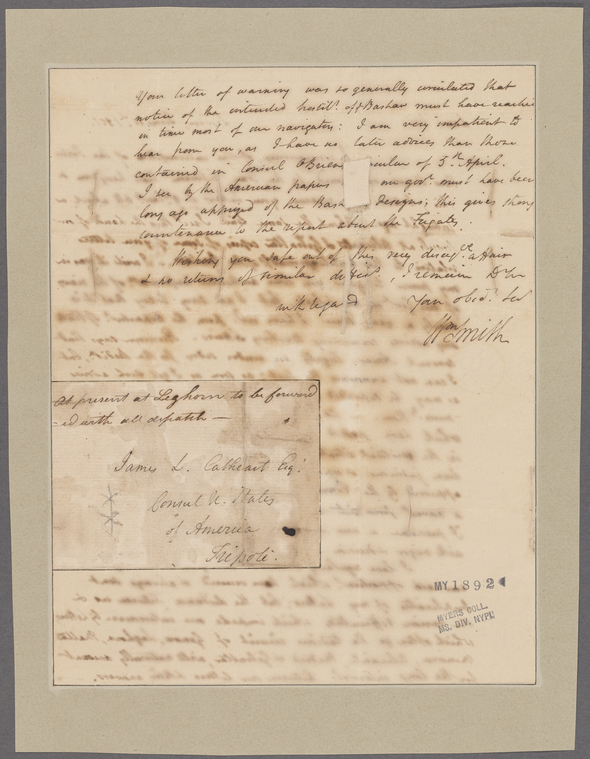 Your letter of warning was so generally circulated that
notice of the intended hostils. of ye Bashaw must have reached
in time most of our navigators: I am very impatient to
hear from you, as I have no later advices than those
contained in Consul OBriens culars of 3d. April.
I see by the American papers our govt. must have been
long ago apprized of the Bash designs; this gives strong
countenance to the report about the Frigates..
Wishing you safe out of this very affair
& no returns of similar, I remain Dr Sir
with regard Your obedt. Sert
Wm Smith
At present at Leghorn to be forward
=ed with all dispatch —
James L. Cathcart Esqr.
Consul U. States
of America
Tripoli.
MY 1892
MYERS COLL.
MS. DIV. NYPL